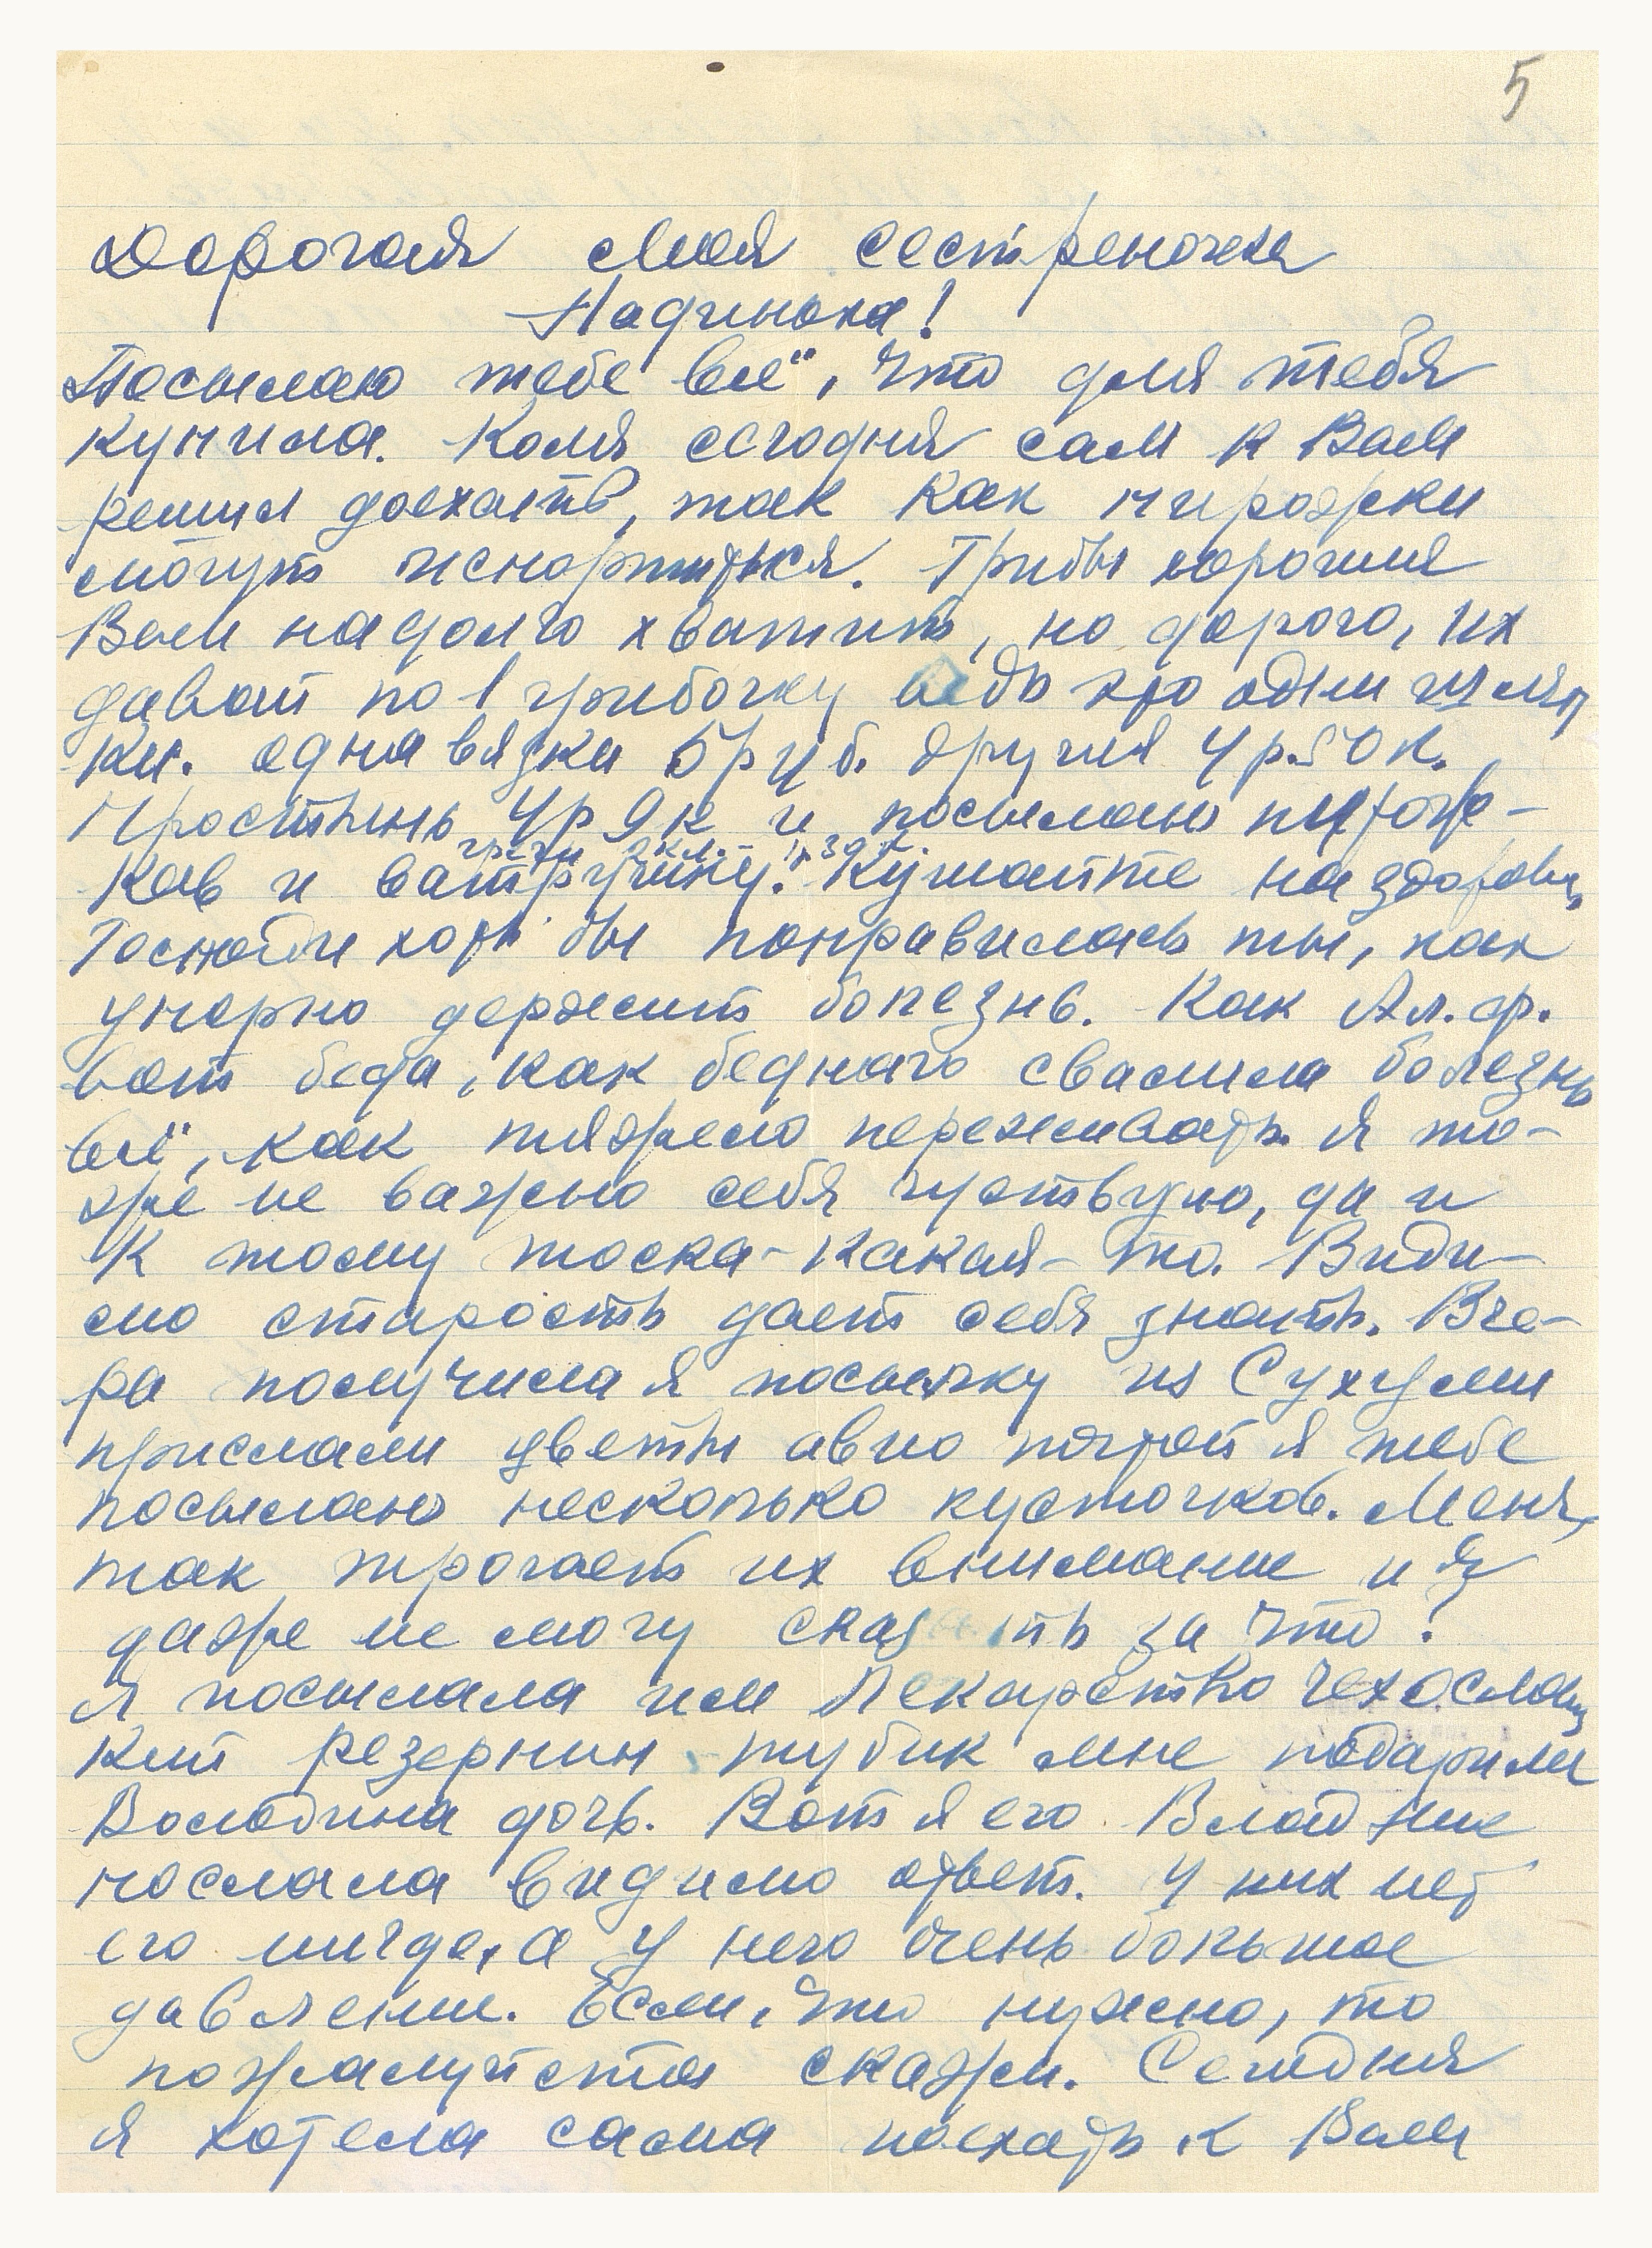 5
Дорогая моя сестреночка
Надинька!
Посылаю тебе всё, что для тебя
купила. Коля сегодня сам к Вам
решил доехать, так как пирожки
могут испортиться. Грибы хорошие
Вам надолго хватит, но дорого, их
дават по 1 грибочку ведь это одни шляп
ки. одна вязка 5 руб. другая 4 р. 50 к.
Простынь 4 р 9 к и посылаю пирож-
гречи 2 кл.
ков и ватрушку. Кушайте на здоровье,
Господи хоть бы поправилась ты, как
упорно держит болезнь. Как Ал. Ф.
вот беда, как бедного свалила болезнь
всё, как тяжело переживать. Я то-
же не важно себя чуствую, да и
к тому тоска-какая-то. Види-
мо старость дает себя знать. Вче-
ра получила я посылку из Сухуми
прислали цветы авио почтой я тебе
посылаю несколько кусточков. Меня
так трогает их внимание и я
даже не могу сказать за что?
Я посылала им лекарство чехословац
кий резерпин тубик мне подарили
Володина дочь. Вот я его Влад Ник
послала видимо ответ. У них нет
его нигде, а у него очень большое
давление. Если, что нужно, то
пожалуйста скажи. Сегодня
я хотела сама поехать к Вам